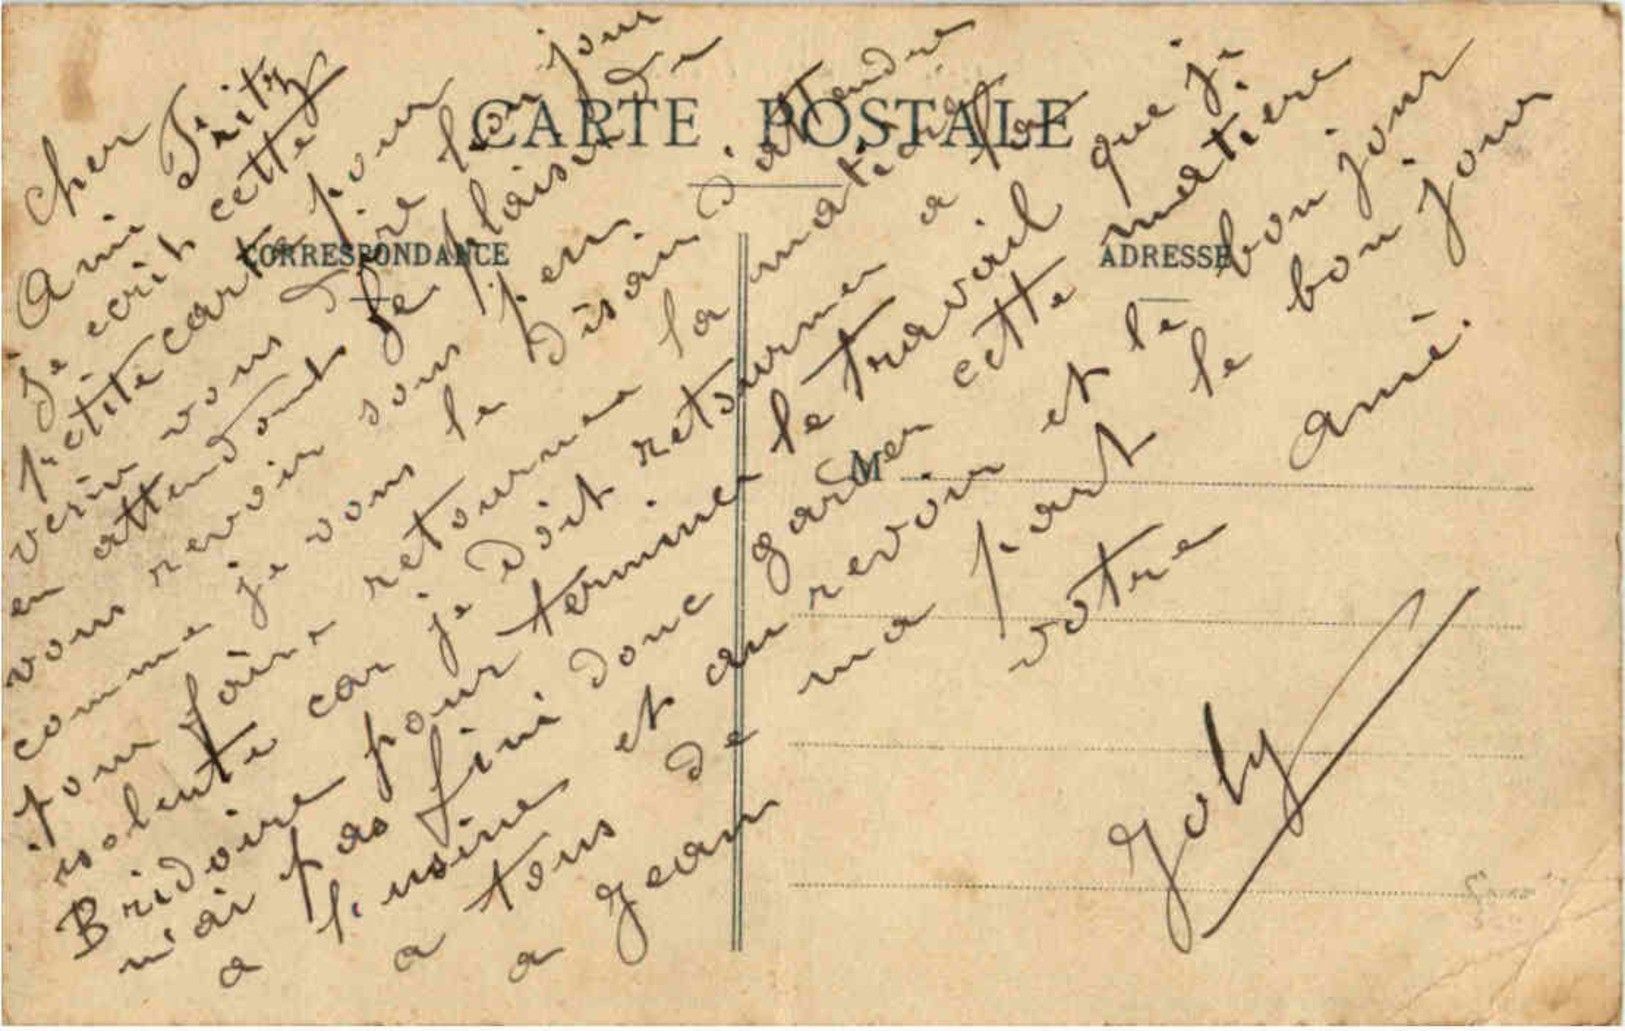 CARTE POSTALE
CORRESPONDANCE
ADRESSE
M
Cher
Ami Fritz
Je ecrit cette
petite carte pour
venir vous dire bon jour
en attendant Le plaisir de
vous revoir sous peu.
comme je vous le disai d'attendre
pour faire retourner la matière
isolente car je doit retourner a la
Bridoire pour terminer le travail que je
n'ai pas fini donc garder cette matiere
a l'usine et au revoir et le bon jour
a tous de ma part le bon jour
a Jean votre Ami.
Joly